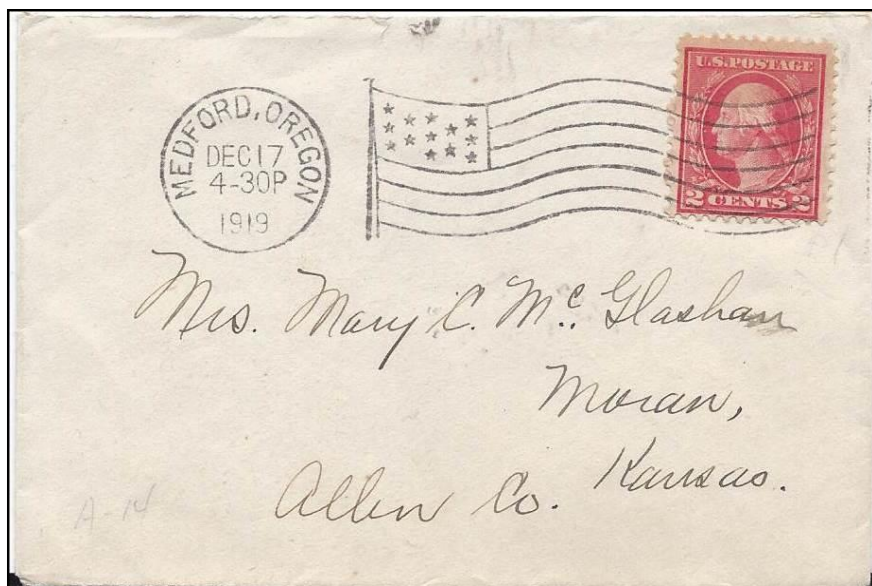 MEDFORD, OREGON
DEC 17
4-30P
1919
U.S. POSTAGE
2 CENTS 2
Mrs. Mary C. Mc. Glashan
Moran,
Kansas.
Allen Co.
A-14